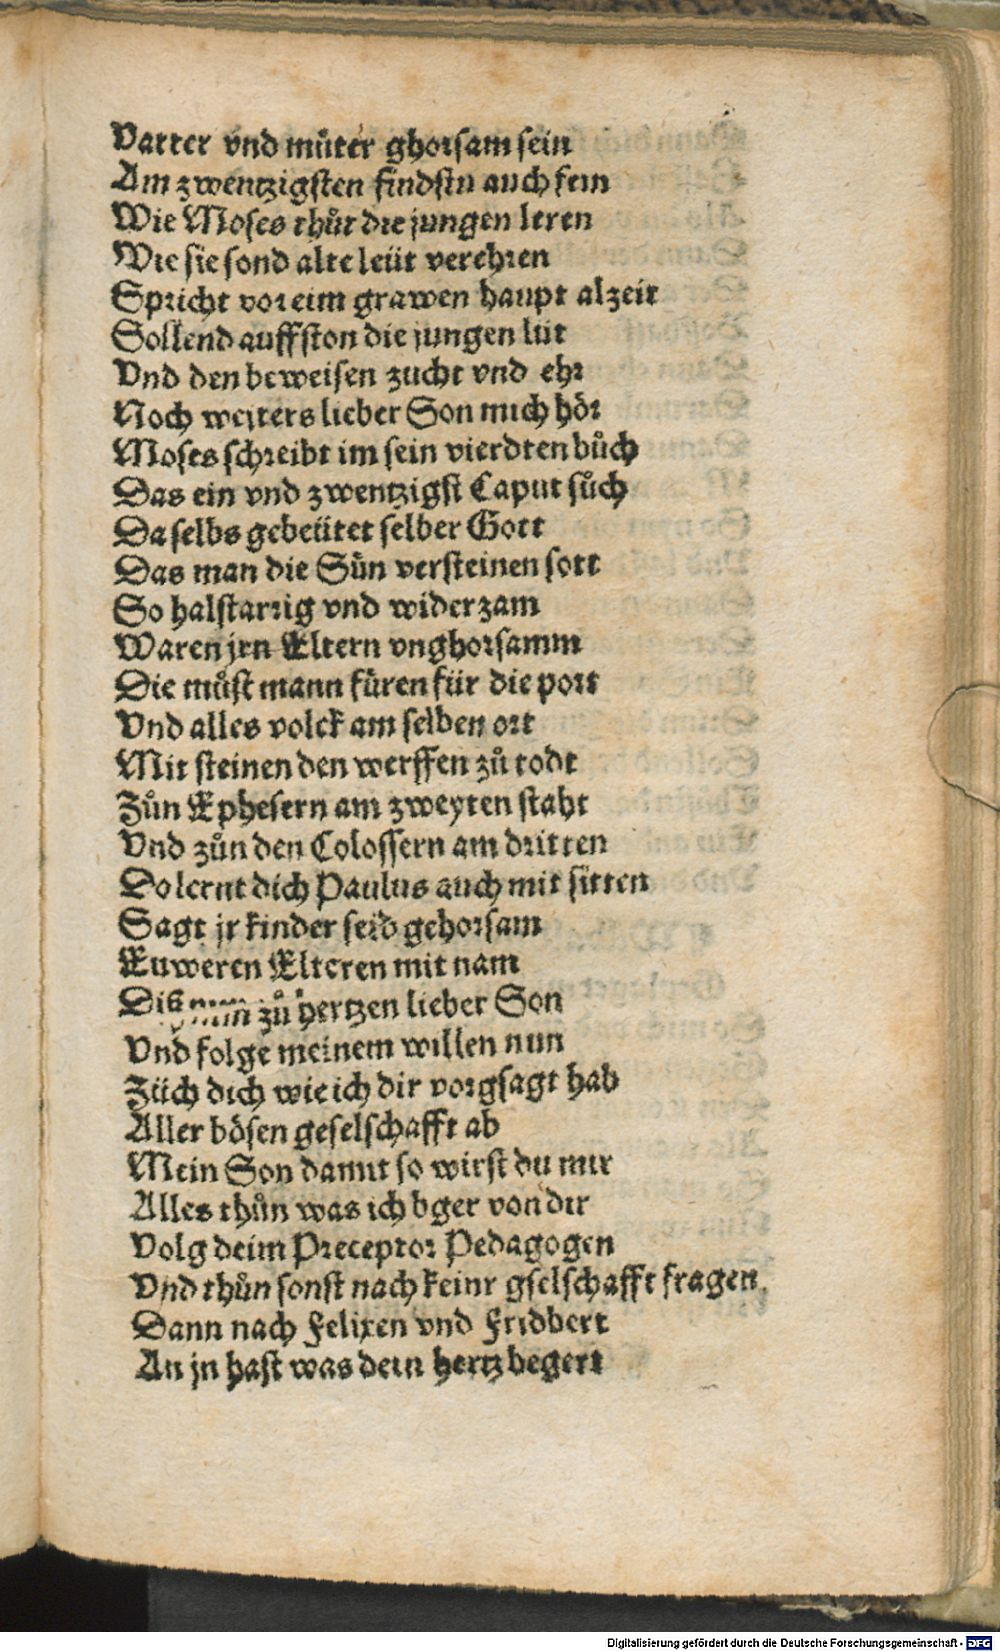 Vatter vnd můter ghorsam sein
Am zwentzigsten findstu auch fein
Wie Moses thůt die jungen leren
Wie sie sond alte leüt verehren
Spricht vor eim grawen haupt alzeit
Sollend auffston die jungen lüt
Vnd den beweisen zucht vnd ehr
Noch weiters lieber Son mich hör
Moses schreibt im sein vierdten bůch
Das ein vnd zwentzigst Caput sůch
Da selbs gebeütet selber Gott
Das man die Sün versteinen sott
So halstarrig vnd widerzam
Waren jren Eltern vnghorsamm
Die můst mann füren für die port
Vnd alles volck am selben ort
Mit steinen den werffen zů todt
Zůn Ephesern am zweyten staht
Vnd zůn den Colossern am dritten
Do lernt dich Paulus auch mit sitten
Sagt jr kinder seid gehorsam
Euweren Elteren mit nam
Diß nim zů hertzen lieber Son
Vnd folge meinem willen nun
Züch dich wie ich dir vorgsagt hab
Aller bösen geselschafft ab
Mein Son damit so wirst du mir
Alles thůn was ich bger von dir
Volg deim Preceptor Pedagogen
Vnd thůn sonst nach keinr gselschafft fragen
Dann nach Felixen vnd Fridbert
An jn hast was dein hertz begert
Digitalisierung gefördert durch die Deutsche Forschungsgemeinschaft - DFG